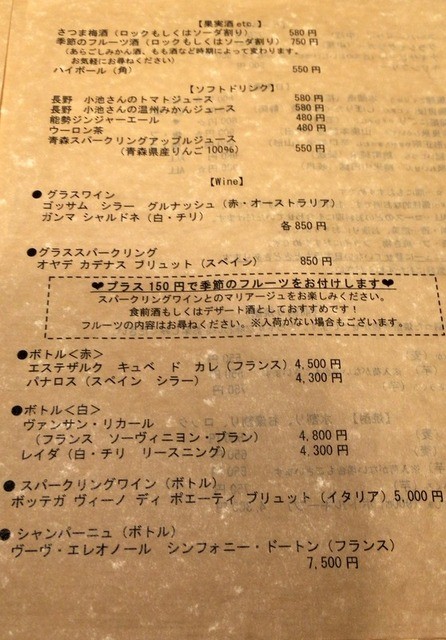 【果実酒 etc.】
さつま梅酒(ロックもしくはソーダ割り) 580円
季節のフルーツ酒(ロックもしくはソーダ割り) 750円
(あらごしみかん酒、もも酒など時期によって変わります。
お気軽にお尋ねください)
ハイボール(角) 550円
【ソフトドリンク】
長野 小池さんのトマトジュース 580円
長野 小池さんの温州みかんジュース 580円
能勢ジンジャーエール 480円
ウーロン茶 480円
青森スパークリングアップルジュース
(青森県産りんご100%) 550円
【Wine】
●グラスワイン
ゴッサム シラー グルナッシュ(赤・オーストラリア)
ガンマ シャルドネ(白・チリ)
各850円
●グラススパークリング
オヤデ カデナス ブリュット(スペイン) 850円
❤プラス150円で季節のフルーツをお付けします❤
スパークリングワインとのマリアージュをお楽しみください。
食前酒もしくはデザート酒としておすすめです!
フルーツの内容はお尋ねください。※入荷がない場合もございます。
●ボトル<赤>
エステザルク キュベ ド カレ(フランス) 4,500円
パナロス(スペイン シラー) 4,300円
●ボトル<白>
ヴァンサン・リカール
(フランス ソーヴィニヨン・ブラン) 4,800円
レイダ(白・チリ リースニング) 4,300円
●スパークリングワイン(ボトル)
ボッテガ ヴィーノ ディ ポエーティ ブリュット(イタリア) 5,000円
●シャンパーニュ(ボトル)
ヴーヴ・エレオノール シンフォニー・ドートン(フランス)
7,500円